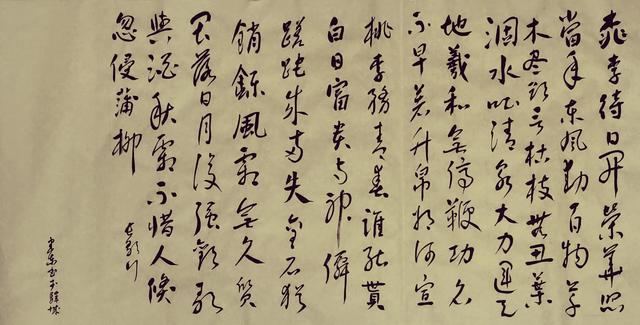 桃李待日開榮華照
當年東風動百物草
木盡欲言枯枝無丑葉
涸水吐清泉大力運天
地羲和無停鞭功名
不早著竹帛將何宣
桃李務青春誰能貰
白日富貴与神僊
蹉跎成兩失金石猶
銷鑠風霜無久質
畏落日月後强歡歌
與酒秋霜不惜人倏
忽侵蒲柳
長歌行